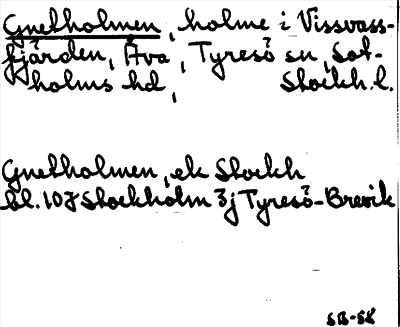 Gnetholmen, holme i Vissvass-
fjärden, Åva, Tyresö sn, Sot-
holms hd, Stockh. l.
Gnetholmen, ek Stockh
bl. 10J Stockholm 3j Tyresö-Brevik
SB-58